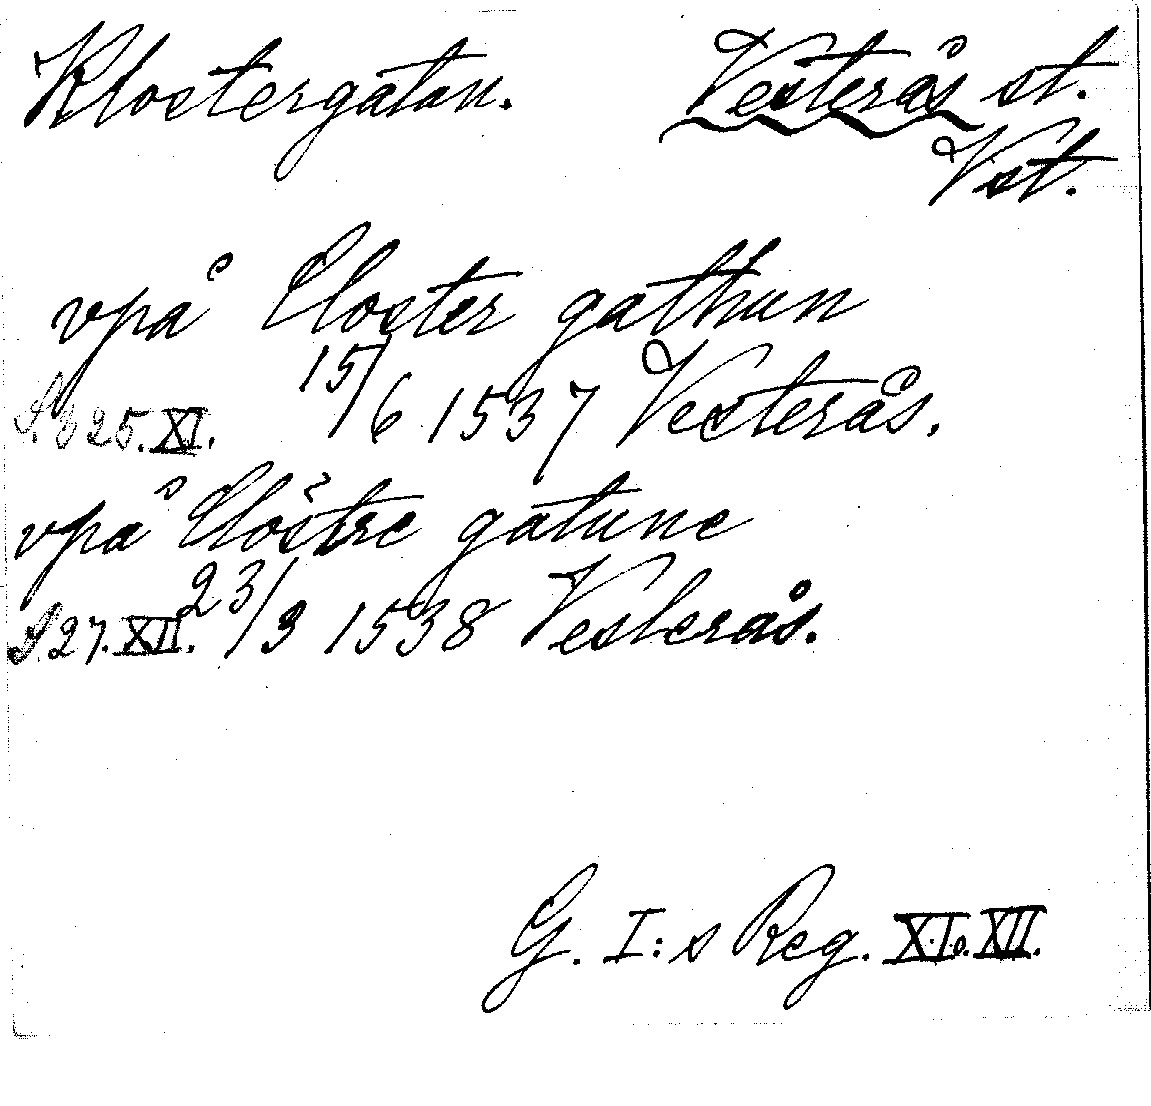 Klostergatan. Vesterås st.
Vst.
vpå Closter gathun
S. 325. XI. 15/6 1537 Vesterås.
vpå Clöstre gatune
S. 27. XII. 23/3 1538 Vesterås.
G. I:s Reg. XI o. XII.